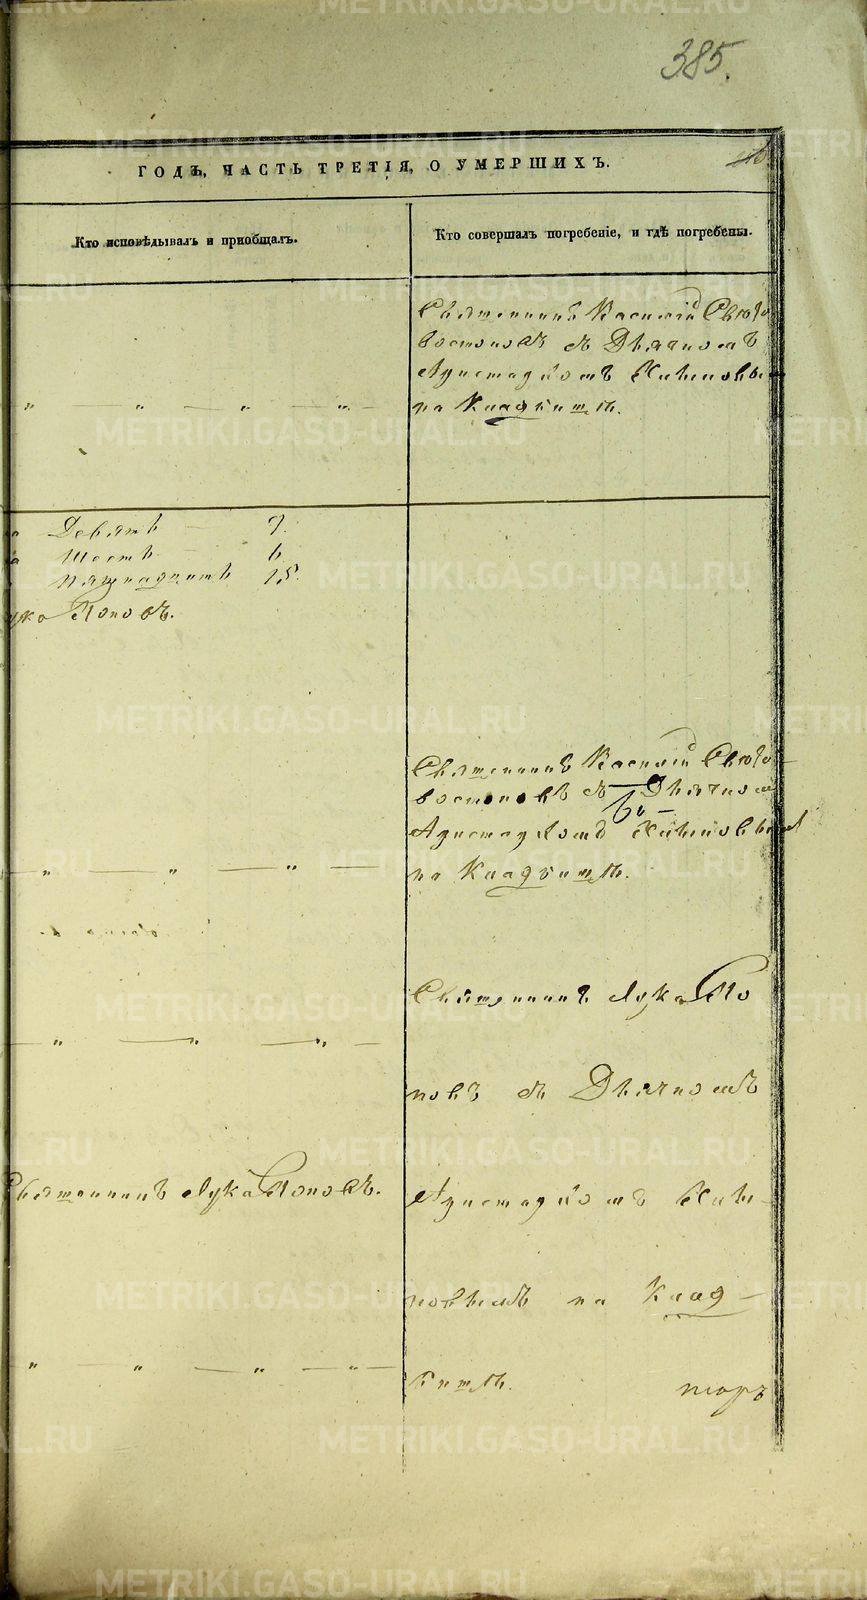 385.
ГОДЪ, ЧАСТЬ ТРЕТІЯ, О УМЕРШИХЪ.
Кто исповѣдывалъ и приобщалъ.
Кто совершалъ погребеніе, и гдѣ погребены.
Священникъ Василій Свѣто
востоковъ съ Дьячкомъ
Аристархомъ
на Кладбищѣ.
Девять 9.
Шесть 6
Пятнадцать 15.
Лука Поповъ.
Священникъ Василій Свѣто-
востоковъ съ Дьячкомъ
Аристархомъ
на Кладбищѣ.
Священникъ Лука По
повъ съ Дьячкомъ
Священникъ Лука Поповъ.
Аристархомъ
на Клад-
бищѣ.
METRIKI.GASO-URAL.RU